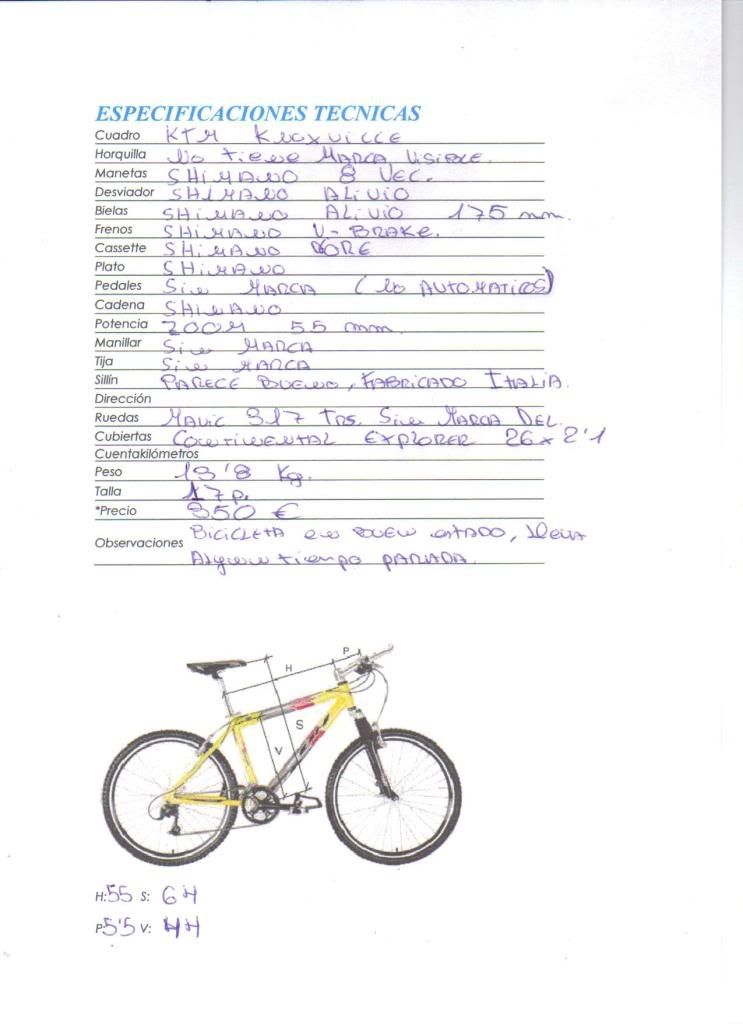 ESPECIFICACIONES TECNICAS
Cuadro KTM KNOXVILLE
Horquilla No tiene MARCA VISIBLE.
Manetas SHIMANO 8 VEL.
Desviador SHIMANO ALIVIO
Bielas SHIMANO ALIVIO 175 mm.
Frenos SHIMANO V-BRAKE.
Cassette SHIMANO DORE
Plato SHIMANO
Pedales Sin MARCA (No AUTOMATICOS)
Cadena SHIMANO
Potencia ZOOM 55 mm.
Manillar Sin MARCA
Tija Sin MARCA
Sillín PARECE BUENO, FABRICADO ITALIA.
Dirección
Ruedas MAVIC 317 TRS. Sin MARCA DEL.
Cubiertas CONTINENTAL EXPLORER 26x2'1
Cuentakilómetros
Peso 13'8 Kg.
Talla 17 p.
*Precio 350 €
Observaciones BICICLETA en BUEN ESTADO, lleva
Algun tiempo PARADA.
P
H
S
V
H:55 S: 64
P5'5 V: 44